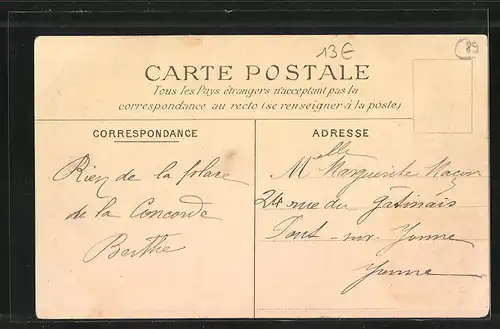 13€
89
CARTE POSTALE
Tous les Pays étrangers n'acceptent pas la
correspondance au recto (se renseigner à la poste)
CORRESPONDANCE
ADRESSE
Rien de la place
de la Concorde
Berthe
Melle Marguerite
24 rue du Gâtinais
Pont-sur-Yonne
Yonne